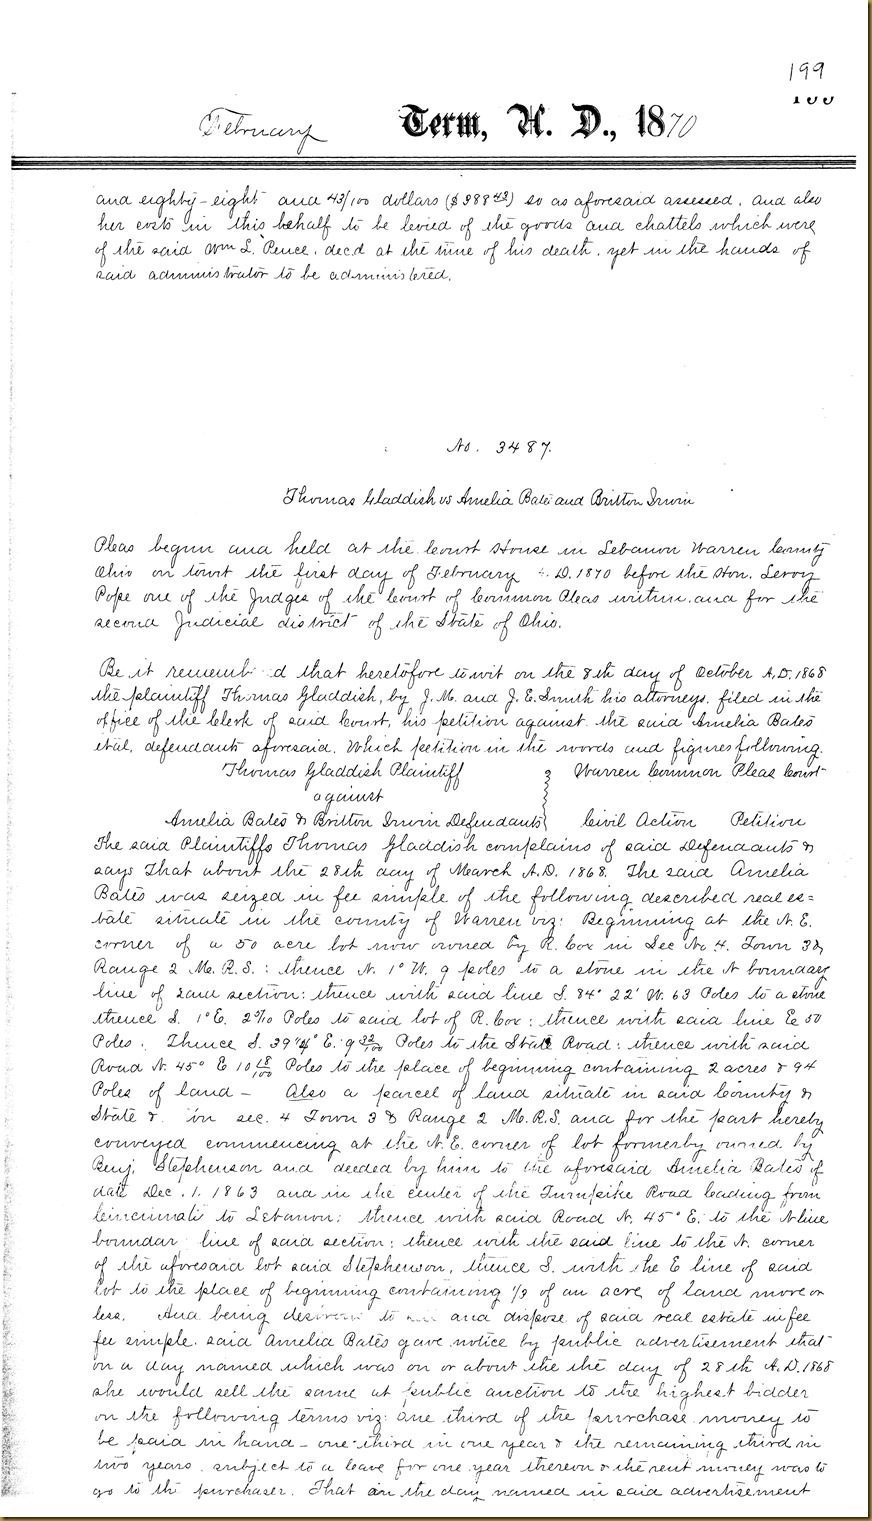 199
February Term, A. D., 1870
and eighty-eight and 43/100 dollars ($388 43) so as aforesaid assessed, and also
her costs in this behalf to be levied of the goods and chattels which were
of the said Wm L. Pence, dec'd at the time of his death, yet in the hands of
said administrator to be administered.
No. 3487.
Thomas Gladdish vs Amelia Bates and Britton Irwin
Pleas begun and held at the Court House in Lebanon Warren County
Ohio on towit the first day of February A. D. 1870 before the Hon. Leroy
Pope one of the Judges of the Court of Common Pleas within, and for the
second Judicial district of the State of Ohio.
Be it rememb d that heretofore towit on the 8th day of October A.D. 1868
the plaintiff Thomas Gladdish, by J. M. and J. E. Smith his attorneys, filed in the
office of the Clerk of said Court, his petition against the said Amelia Bates
etal, defendants aforesaid. Which petition in the words and figures following.
Thomas Gladdish Plaintiff Warren Common Pleas Court
against
Amelia Bates & Britton Irwin Defendants Civil Action Petition
The said Plaintiffs Thomas Gladdish complains of said Defendants &
says That about the 28th day of March A.D. 1868. The said Amelia
Bates was seized in fee simple of the following described real es=
tate situate in the county of Warren viz: Beginning at the N. E.
corner of a 50 acre lot now owned by R. Cox in Sec No 4. Town 3 &
Range 2 M. R. S. : thence N. 1° W. 9 poles to a stone in the N boundary
line of said section: thence with said line S. 84° 22' W. 63 Poles to a stone
thence S. 1° E. 2 9/10 Poles to said lot of R. Cox : thence with said line E 50
Poles. Thence S. 39 1/4° E. 9 32/100 Poles to the State Road : thence with said
Road N. 45° E 10 18/100 Poles to the place of beginning containing 2 acres & 94
Poles of land - Also a parcel of land situate in said County &
State & in sec. 4 Town 3 & Range 2 M.R.S. and for the part hereby
conveyed commencing at the N. E. corner of lot formerby owned by
Benj. Stephenson and deeded by him to the aforesaid Amelia Bates of
date Dec. 1. 1863 and in the center of the Turnpike Road leading from
Cincinnati to Lebanon; thence with said Road N. 45° E. to the N line
boundar line of said section; thence with the said line to the N. corner
of the aforesaid lot said Stephenson, thence S. with the E line of said
lot to the place of beginning containing 1/2 of an acre of land more or
less. And being to and dispose of said real estate in fee
fee simple. said Amelia Bates gave notice by public advertisement that
on a day named which was on or about the the day of 28th A.D. 1868
she would sell the same at public auction to the highest bidder
on the following terms viz: one third of the purchase money to
be paid in hand - one-third in one year & the remaining third in
two years, subject to a leave for one year thereon & the rent money was to
go to the purchaser. That on the day named in said advertisement